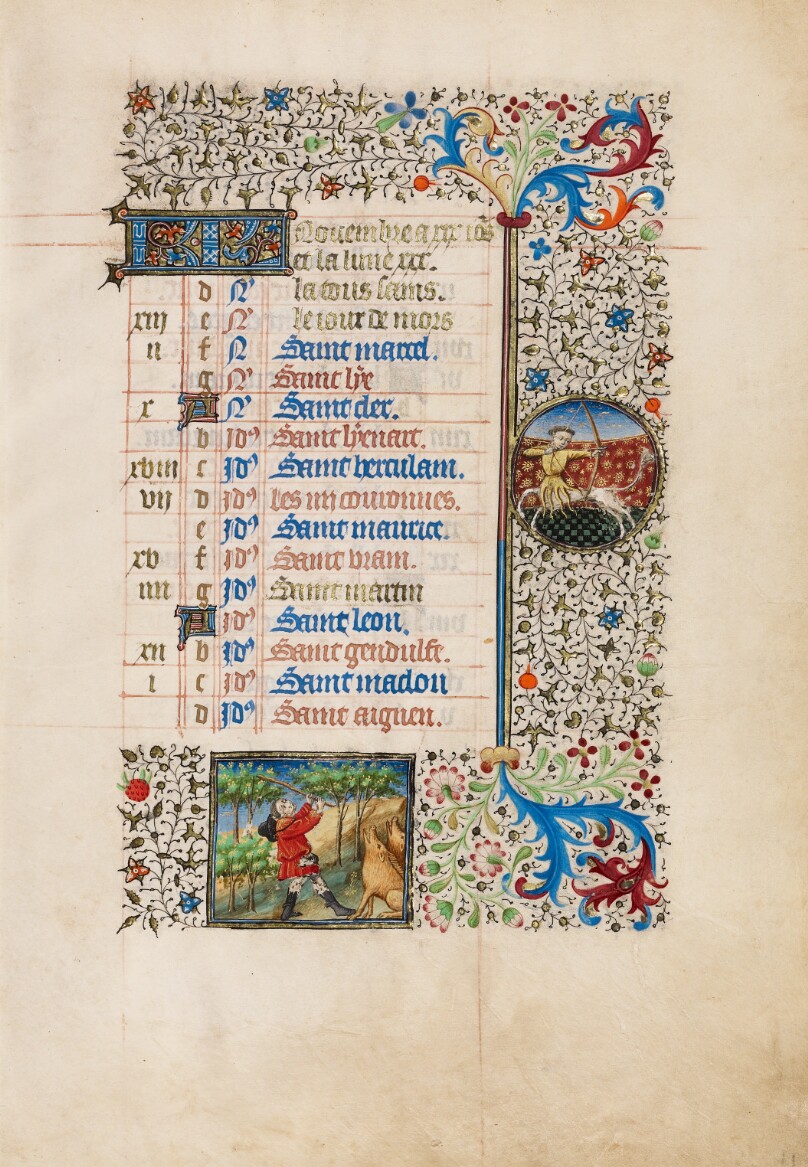 KL Nouembre a xxx iõs
et la lune xxx.
d N' la tous sains.
xiij e N' le iour de mors
ii f N Saint marcel.
g N' Saint lye
x A N' Saint cler.
b id' Saint lyenart.
xviii c id' Saint herculam.
vij d id' les iiij couronnes.
e id' Saint maurice.
xv f id' Saint vram.
iiii g id' Saint martin
A id' Saint leon.
xii b id' Saint gendulfe.
i c id' Saint madou
d id' Saint aignen.